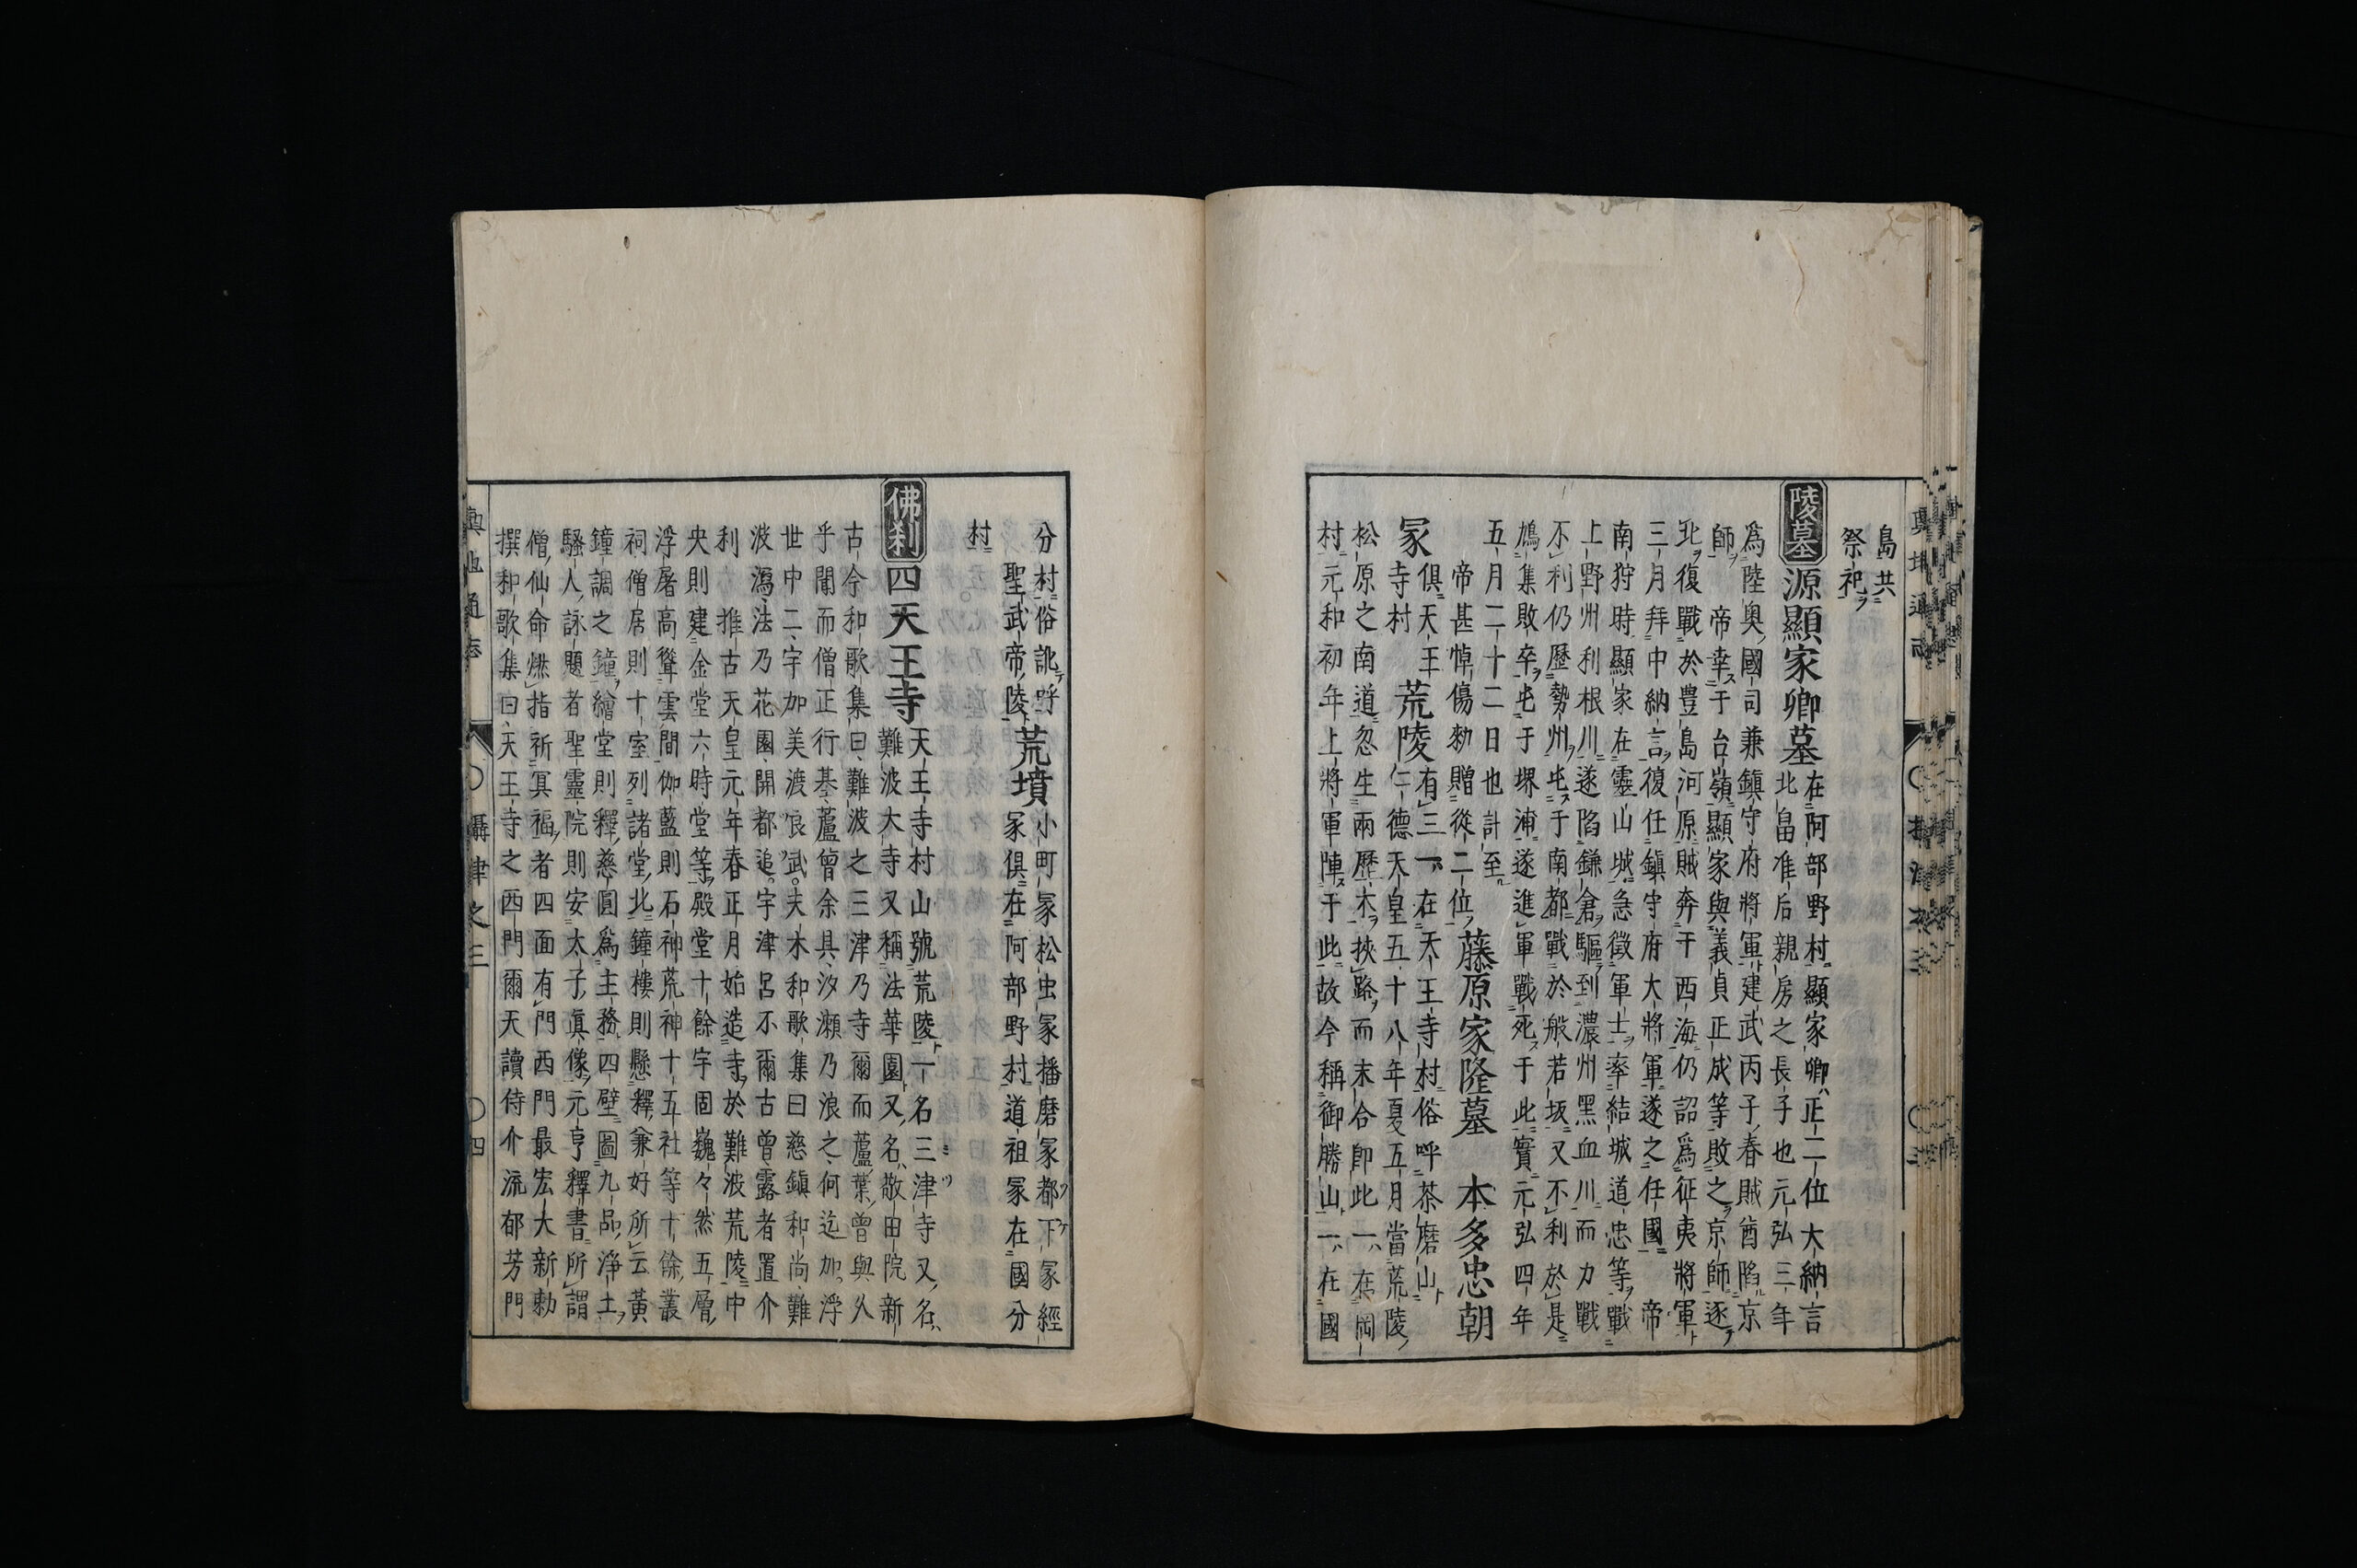 島共
祭祀
陵墓 源顯家卿墓 在阿部野村顯家卿正二位大納言
北畠准后親房之長子也元弘三年
爲陸奧國司兼鎮守府將軍建武丙子春賊酋陷京
師 帝幸于台嶺顯家與義貞正成等敗之京師逐
北復戰於豊島河原賊奔干西海仍詔爲征夷將軍
三月拜中納言復任鎮守府大將軍遂之任國 帝
南狩時顯家在靈山城急徵軍士率結城道忠等戰
上野州利根川遂陷鎌倉驅到濃州黑血川而力戰
不利仍歷勢州屯于南都戰於般若坂又不利於是
鳩集敗卒屯于堺浦遂進軍戰死于此實元弘四年
五月二十二日也訃至
帝甚悼傷勅贈從二位 藤原家隆墓 本多忠朝
冢 俱天王
寺村 荒陵 有三一在天王寺村俗呼茶磨山
仁德天皇五十八年夏五月當荒陵
松原之南道忽生兩歷木挾路而末合卽此一在岡
村元和初年上將軍陣于此故今稱御勝山一在國
分村俗訛呼
聖武帝陵 荒墳 小町冢松虫冢播磨冢都下冢經
冢俱在阿部野村道祖冢在國分
村
佛刹 四天王寺 天王寺村山號荒陵一名三津寺又名
難波大寺又稱法華園又名敬田院新
古今和歌集曰難波之三津乃寺爾而蘆葉曾與久
乎聞而僧正行基蘆曾余具汐瀬乃浪之何迄加浮
世中二宇加美渡良武夫木和歌集曰慈鎮和尚難
波瀉法乃花園開都追宇津呂不爾古曾露者置介
利 推古天皇元年春正月始造寺於難波荒陵中
央則建金堂六時堂等殿堂十餘宇固巍々然五層
浮屠高聳雲間伽藍則石神荒神十五社等十餘叢
祠僧居則十室列諸堂北鐘樓則懸釋兼好所云黃
鐘調之鐘繪堂則釋慈圓爲主務四壁圖九品淨土
騷人詠題者聖靈院則安太子眞像元亨釋書所謂
僧仙命燃指祈冥福者四面有門西門最宏大新勅
撰和歌集曰天王寺之西門爾天讀侍介流郁芳門
輿地通志 攝津之三 四